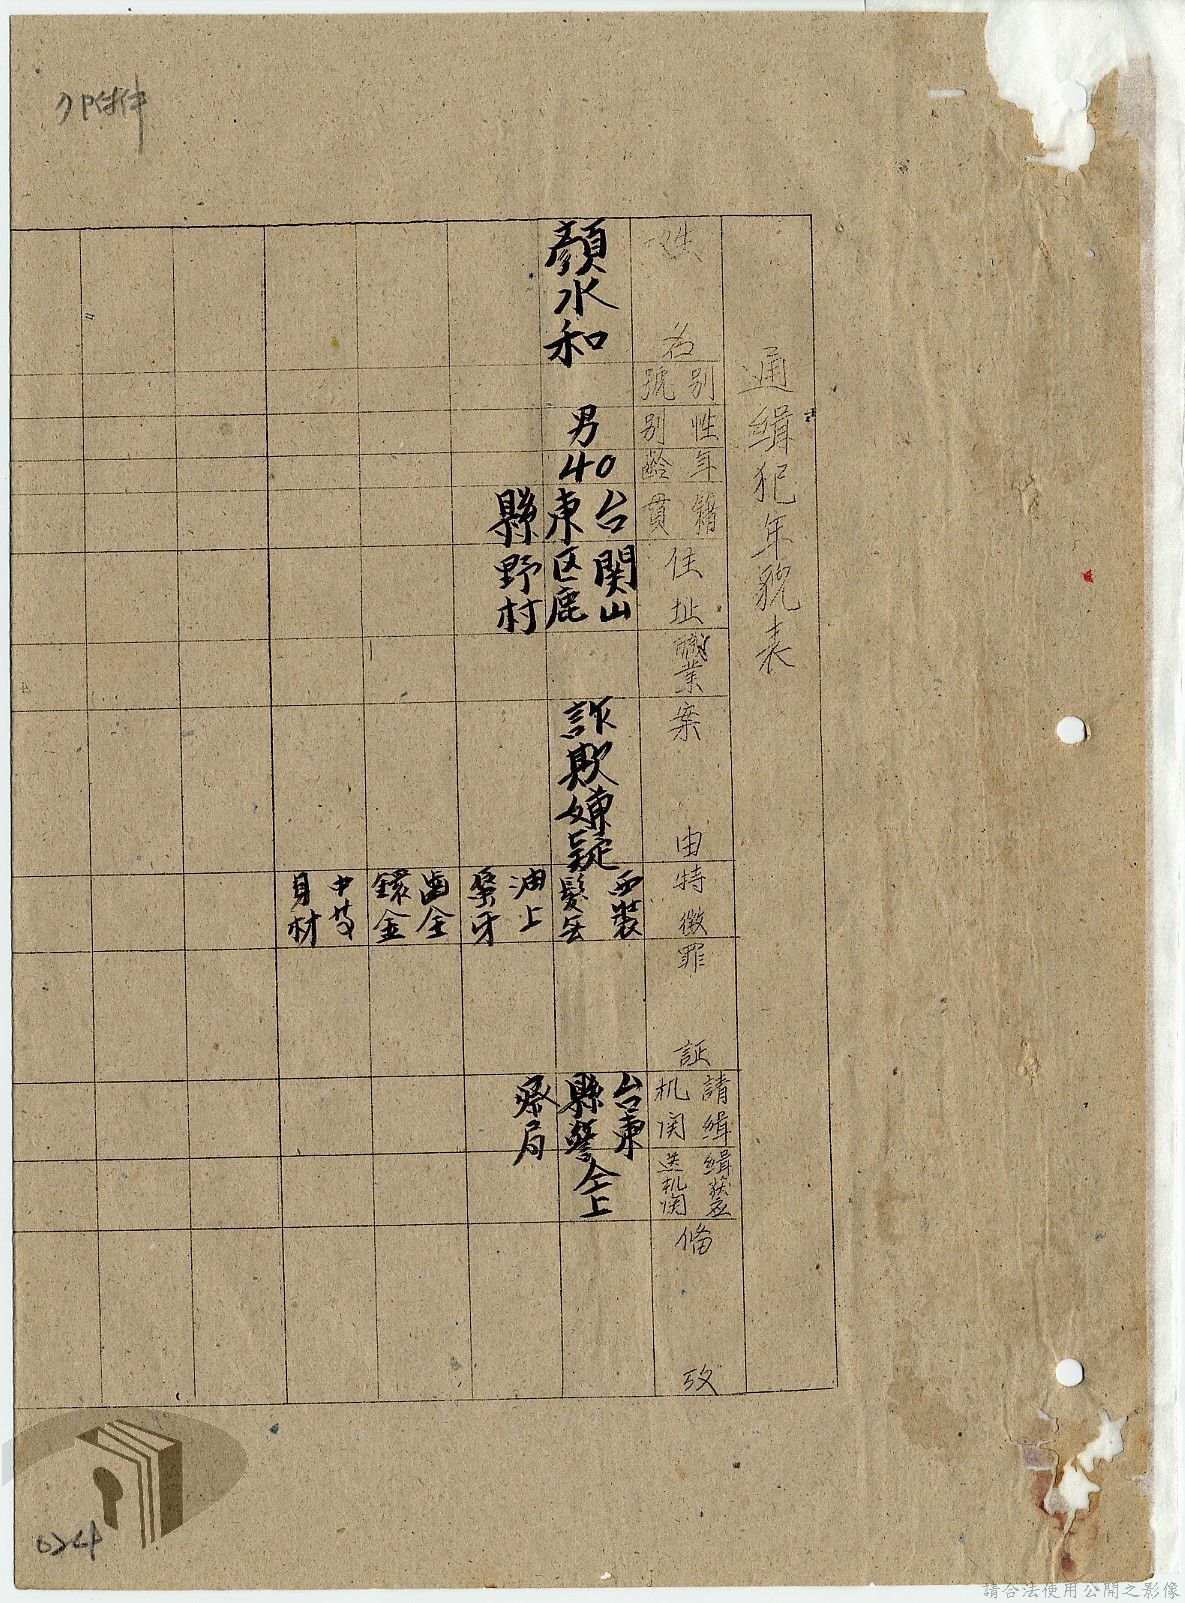 附件
通緝犯年貌表
姓名
別號
性別
年齡
籍貫
住址
職業
案由
特徵
罪証
請緝机関
緝獲應送机関
備攷
顏水和
男
40
台東縣
関山区鹿野村
詐欺嫌疑
西裝
髮無油上
牙
齒全鑲金
中等身材
台東縣警察局
仝上
024
請合法使用公開之影像